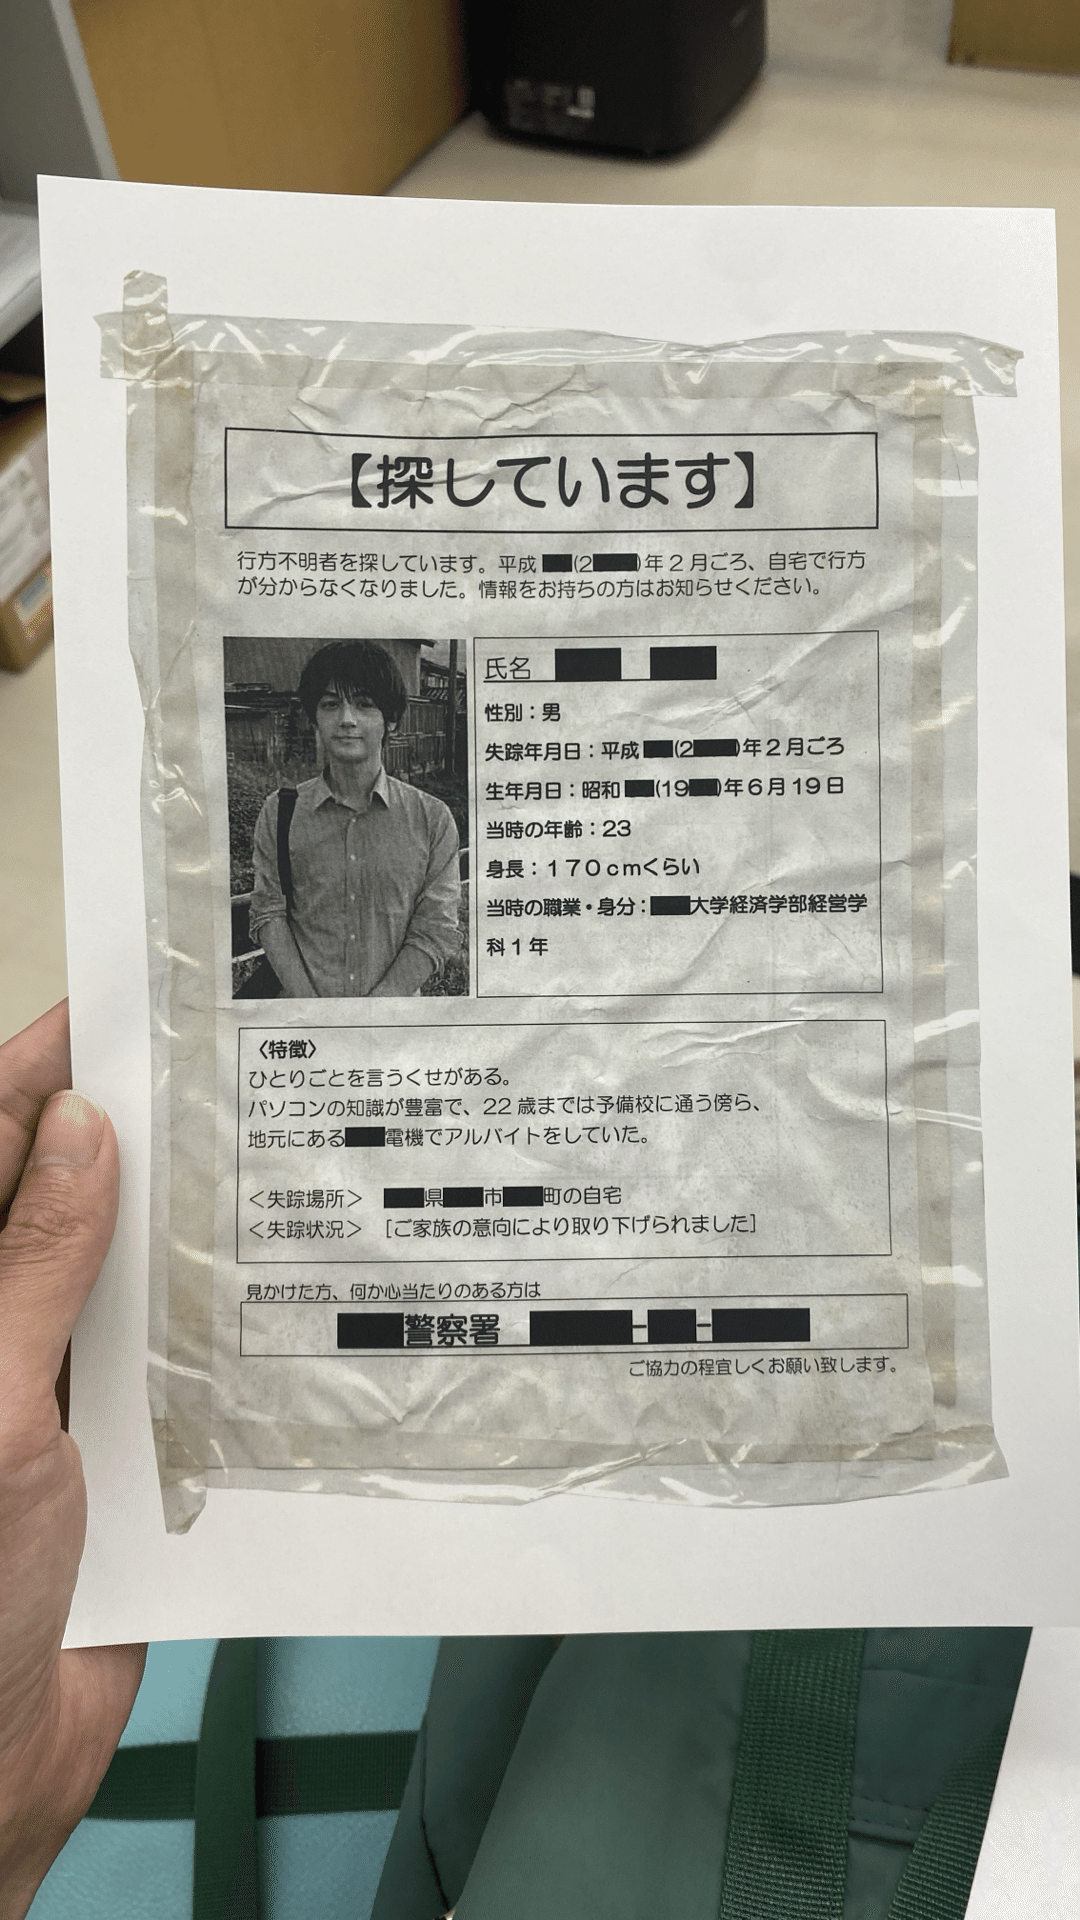 【探しています】
行方不明者を探しています。平成 (2 )年2月ごろ、自宅で行方
が分からなくなりました。情報をお持ちの方はお知らせください。
氏名
性別：男
失踪年月日：平成 (2 )年2月ごろ
生年月日：昭和 (19 )年6月19日
当時の年齢：23
身長：170cmくらい
当時の職業・身分： 大学経済学部経営学
科1年
〈特徴〉
ひとりごとを言うくせがある。
パソコンの知識が豊富で、22歳までは予備校に通う傍ら、
地元にある 電機でアルバイトをしていた。
＜失踪場所＞ 県 市 町の自宅
＜失踪状況＞ [ご家族の意向により取り下げられました]
見かけた方、何か心当たりのある方は
警察署 - -
ご協力の程宜しくお願い致します。